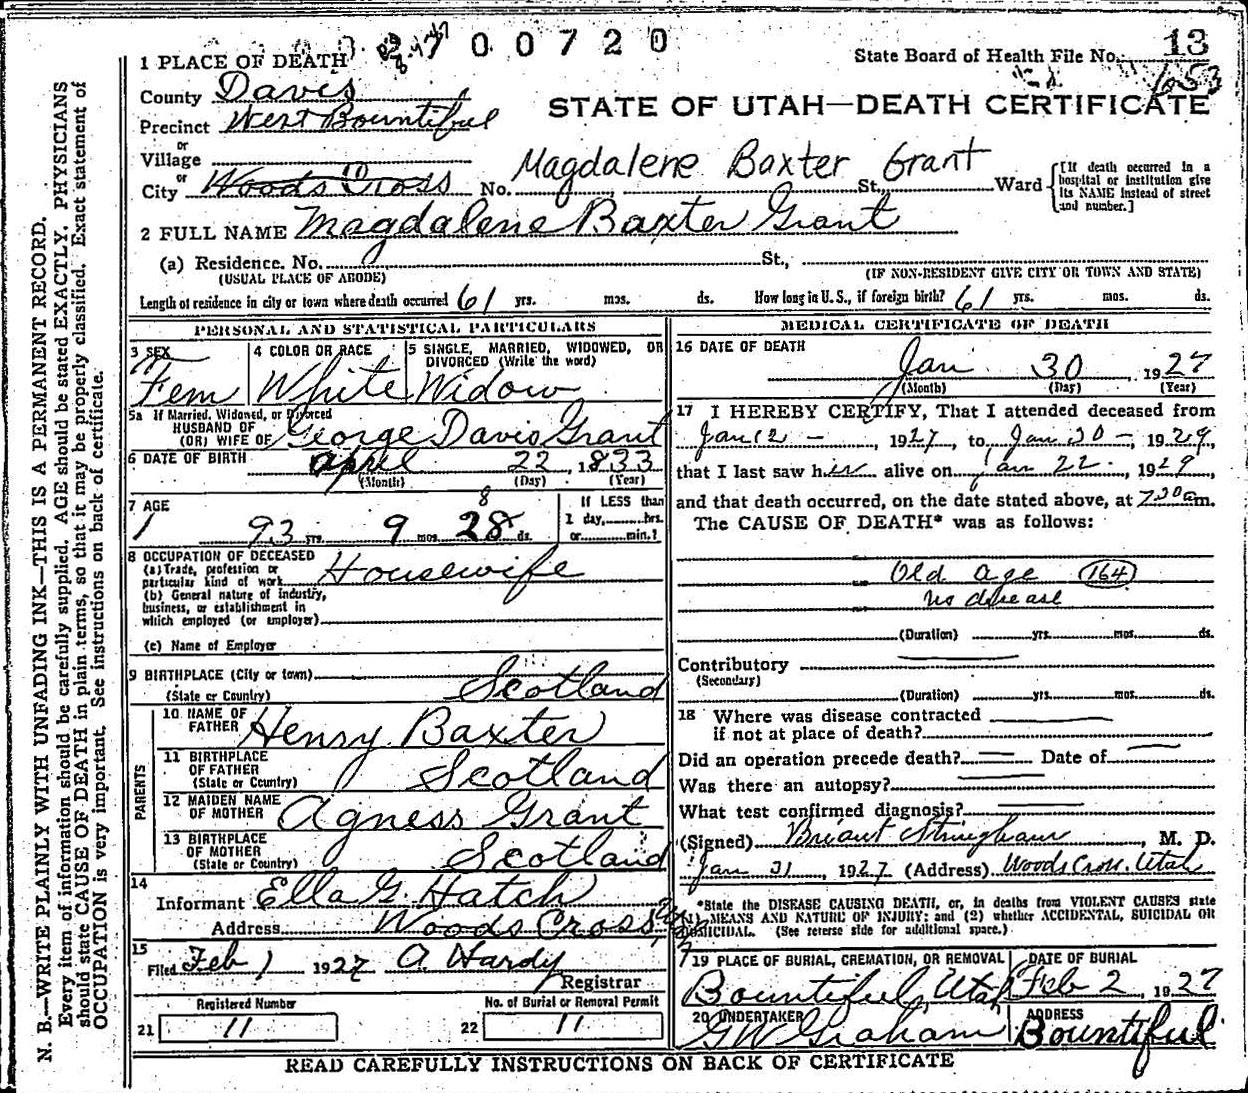 2700720
State Board of Health File No. 13
1 PLACE OF DEATH
653
County Davis
STATE OF UTAH—DEATH CERTIFICATE
Precinct West Bountiful
or
Village
Magdalene Baxter Grant
or
City Woods Cross No. St., Ward
[If death occurred in a hospital or institution give its NAME instead of street and number.]
2 FULL NAME Magdalene Baxter Grant
(a) Residence. No. St.,
(USUAL PLACE OF ABODE) (IF NON-RESIDENT GIVE CITY OR TOWN AND STATE)
Length of residence in city or town where death occurred 61 yrs. mos. ds. How long in U.S., if foreign birth? 61 yrs. mos. ds.
PERSONAL AND STATISTICAL PARTICULARS
3 SEX 4 COLOR OR RACE 5 SINGLE, MARRIED, WIDOWED, OR
DIVORCED (Write the word)
Fem White Widow
5a If Married, Widowed, or Divorced
HUSBAND OF
(OR) WIFE OF George Davis Grant
6 DATE OF BIRTH April 22, 1833
(Month) (Day) (Year)
7 AGE 8 If LESS than
93 yrs. 9 mos. 28 ds. 1 day, hrs.
or min.?
8 OCCUPATION OF DECEASED
(a) Trade, profession or
particular kind of work Housewife
(b) General nature of industry,
business, or establishment in
which employed (or employer)
(c) Name of Employer
9 BIRTHPLACE (City or town)
(State or Country) Scotland
PARENTS
10 NAME OF
FATHER Henry Baxter
11 BIRTHPLACE
OF FATHER
(State or Country) Scotland
12 MAIDEN NAME
OF MOTHER Agness Grant
13 BIRTHPLACE
OF MOTHER
(State or Country) Scotland
14
Informant Ella G. Hatch
Address Woods Cross
15
Filed Feb 1 1927 A. Hardy
Registrar
Registered Number No. of Burial or Removal Permit
21 11 22 11
MEDICAL CERTIFICATE OF DEATH
16 DATE OF DEATH
Jan 30, 1927
(Month) (Day) (Year)
17 I HEREBY CERTIFY, That I attended deceased from
Jan 12 —, 1927, to Jan 30 —, 1929,
that I last saw her alive on Jan 22, 1929
and that death occurred, on the date stated above, at 7:30 am.
The CAUSE OF DEATH* was as follows:
Old age 164
no disease
(Duration) yrs. mos. ds.
Contributory
(Secondary)
(Duration) yrs. mos. ds.
18 Where was disease contracted
if not at place of death?
Did an operation precede death? Date of
Was there an autopsy?
What test confirmed diagnosis?
(Signed) Briant Stringham, M. D.
Jan 31, 1927 (Address) Woods Cross, Utah
*State the DISEASE CAUSING DEATH, or, in deaths from VIOLENT CAUSES state
(1) MEANS AND NATURE OF INJURY; and (2) whether ACCIDENTAL, SUICIDAL OR
HOMICIDAL. (See reverse side for additional space.)
19 PLACE OF BURIAL, CREMATION, OR REMOVAL DATE OF BURIAL
Bountiful, Utah Feb 2, 1927
20 UNDERTAKER ADDRESS
G W Graham Bountiful
READ CAREFULLY INSTRUCTIONS ON BACK OF CERTIFICATE
N. B.—WRITE PLAINLY WITH UNFADING INK—THIS IS A PERMANENT RECORD.
Every item of information should be carefully supplied. AGE should be stated EXACTLY. PHYSICIANS
should state CAUSE OF DEATH in plain terms, so that it may be properly classified. Exact statement of
OCCUPATION is very important. See instructions on back of certificate.